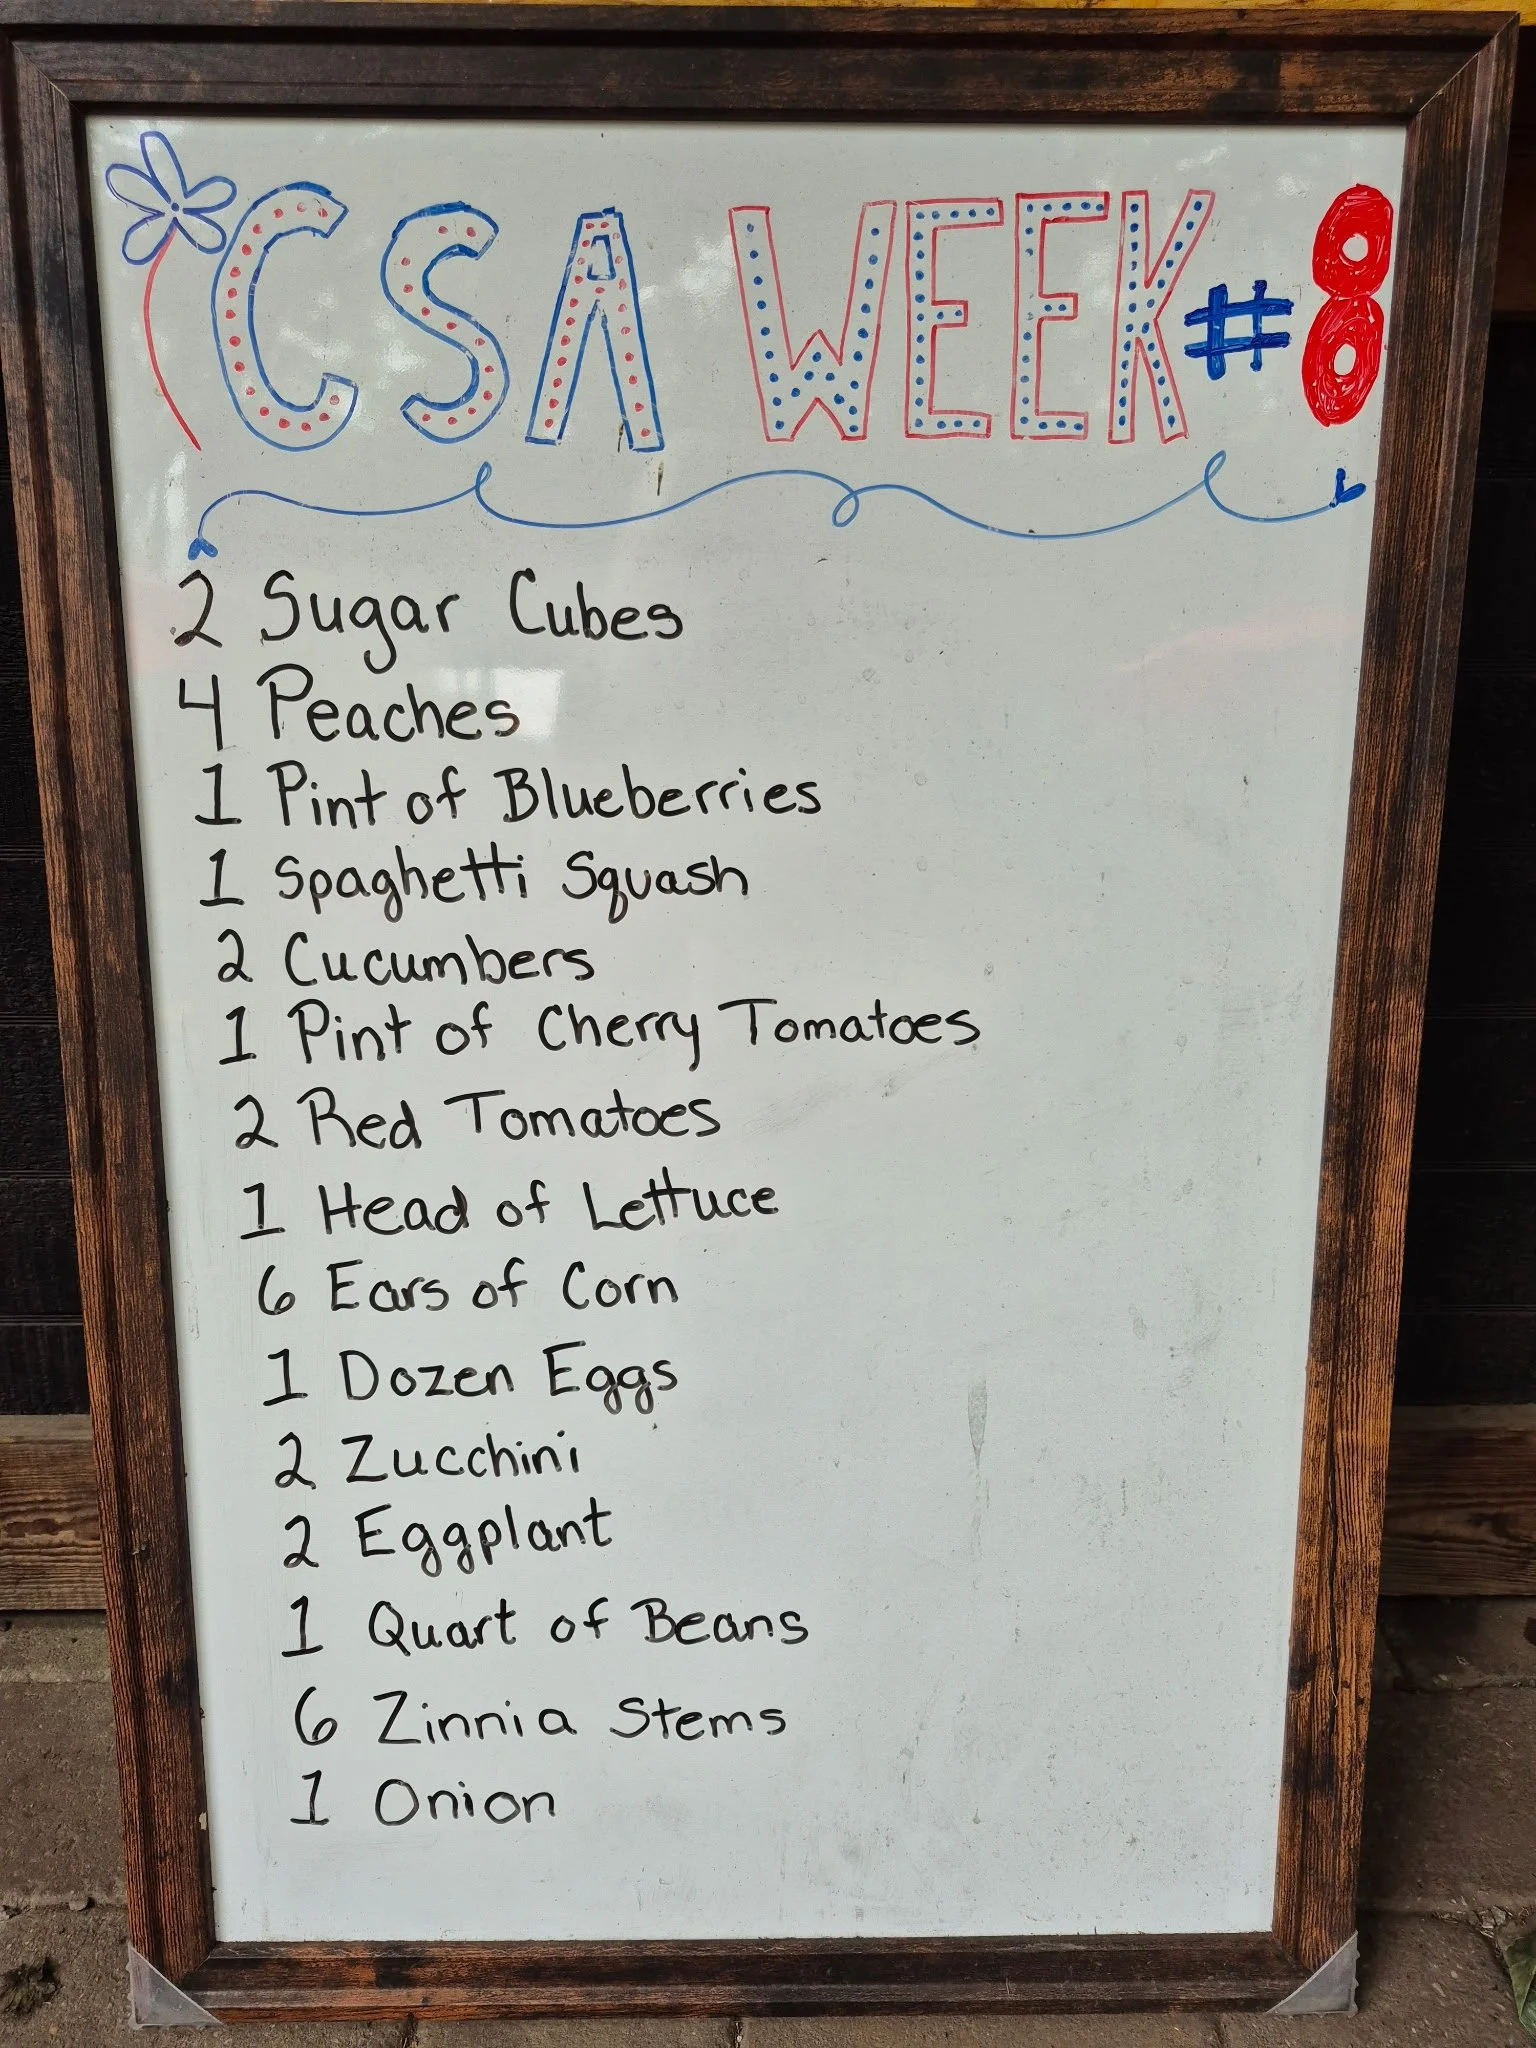 CSA WEEK #8
2 Sugar Cubes
4 Peaches
1 Pint of Blueberries
1 Spaghetti Squash
2 Cucumbers
1 Pint of Cherry Tomatoes
2 Red Tomatoes
1 Head of Lettuce
6 Ears of Corn
1 Dozen Eggs
2 Zucchini
2 Eggplant
1 Quart of Beans
6 Zinnia Stems
1 Onion